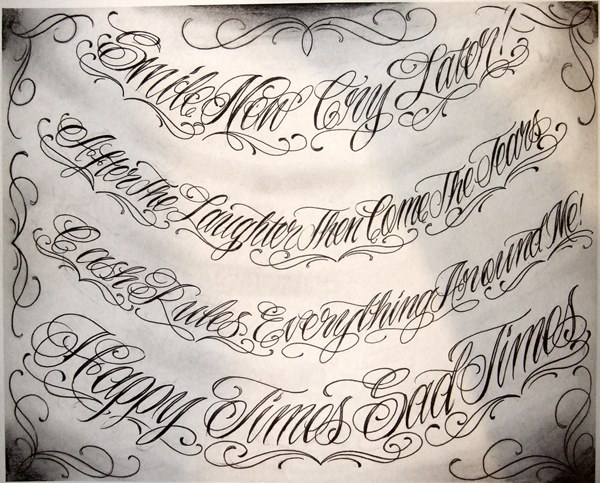 Smile Now Cry Later!
After The Laughter Then Come The Tears
Cash Rules Everything Around Me!
Happy Times Sad Times